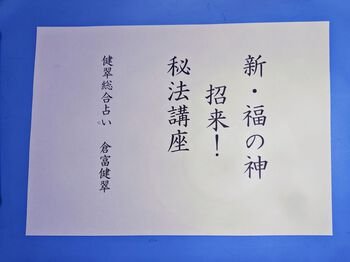 新・福の神
招来！
秘法講座
健翠総合占い　倉富健翠